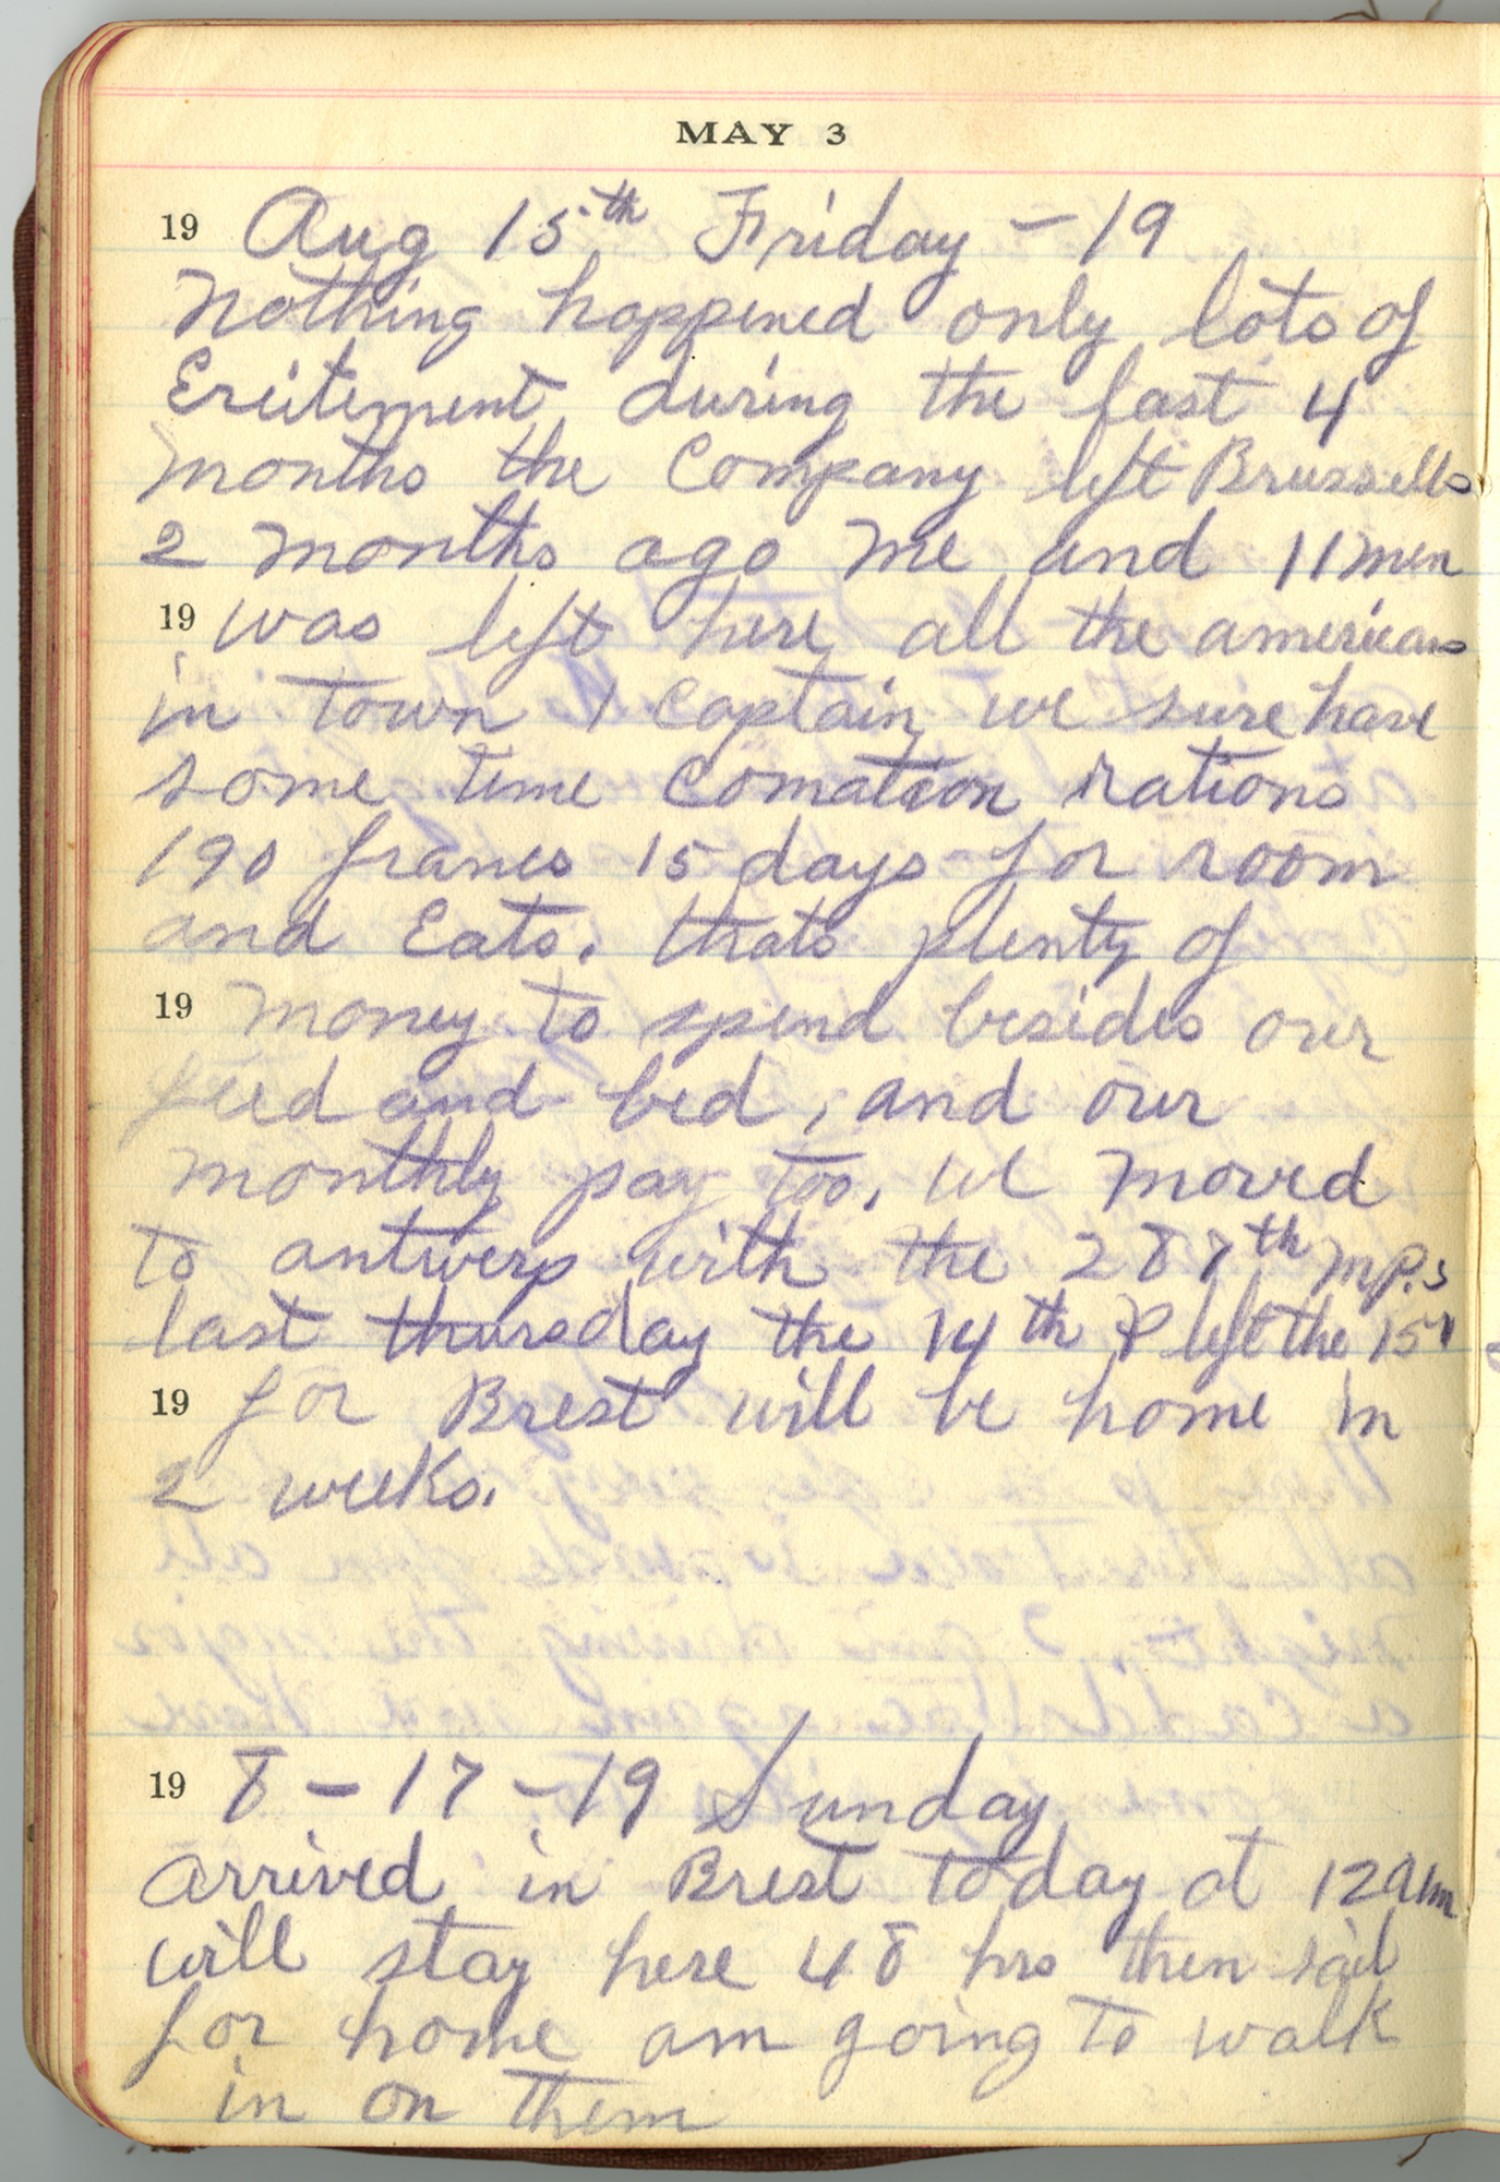 MAY 3
19 Aug 15th Friday - 19
Nothing happened only lots of
Excitement during the last 4
months the Company left Brussells
2 months ago me and 11 men
19 was left here all the americans
in town 1 Captain we sure have
some time Comation rations
190 francs 15 days for room
and Eats. thats plenty of
19 money to spend besides our
feed and bed, and our
monthly pay too. we moved
to antwerp with the 287th M.P.s
last thursday the 14th & left the 15th
19 for Brest will be home in
2 weeks.
19 8-17-19 Sunday
arrived in Brest today at 12 am
will stay here 48 hrs then sail
for home am going to walk
in on them